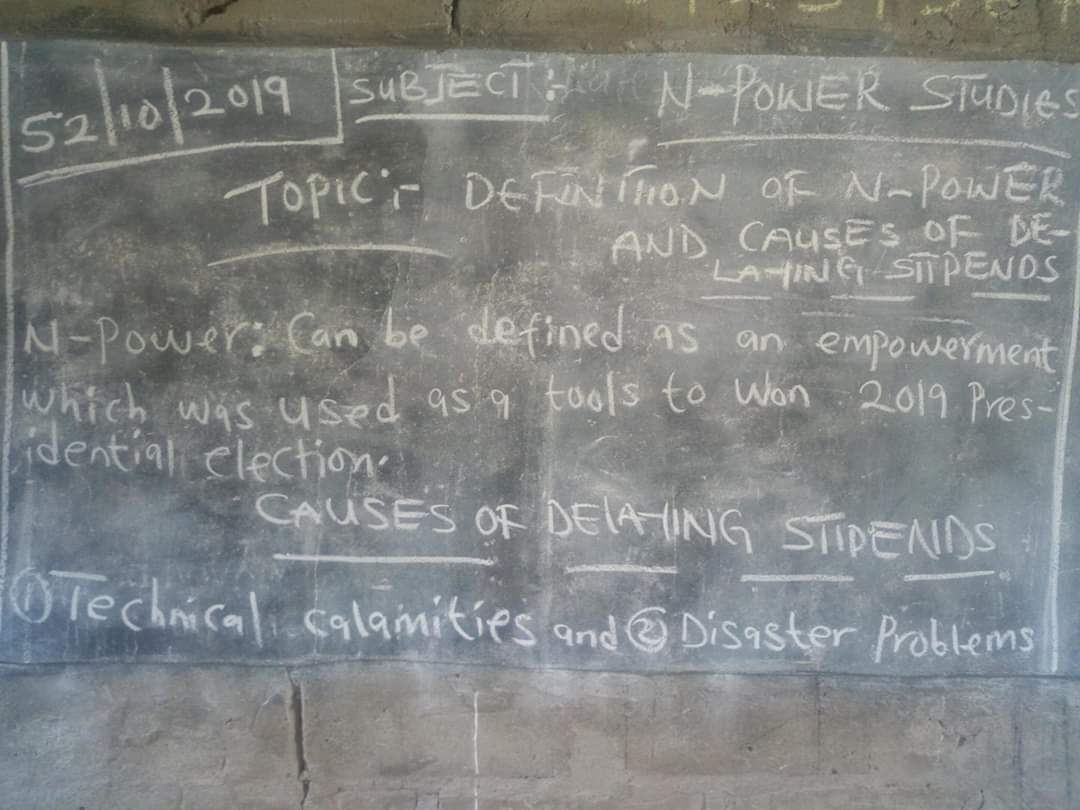 52/10/2019 SUBJECT:- N-POWER STUDIES
TOPIC:- DEFINITION OF N-POWER
AND CAUSES OF DE-
LAYING STIPENDS
N-Power: Can be defined as an empowerment
which was used as a tools to won 2019 Pres-
idential election.
CAUSES OF DELAYING STIPENDS
① Technical calamities and ② Disaster Problems